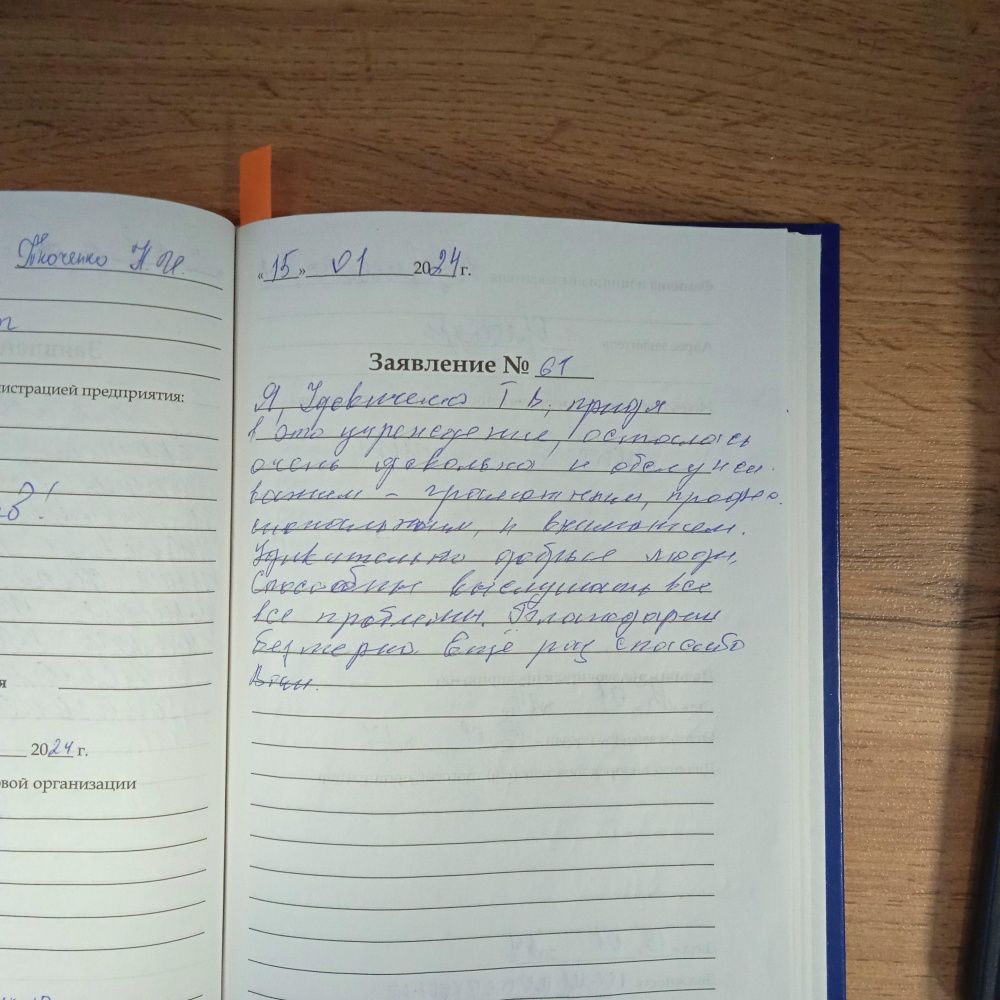 Ткаченко Н.И.
нистрацией предприятия:
я
2024 г.
вой организации
«15» 01 2024 г.
Заявление № 61
Я, Удовиченко Т В, придя
в это учреждение, осталась
очень довольна и обслужи
ванием - грамотным, профес
иональным, и вниманием.
Удивительно добрые люди,
способные выслушать все
все проблемы. Благодарим
безмерно. Ещё раз спасибо
Вам.